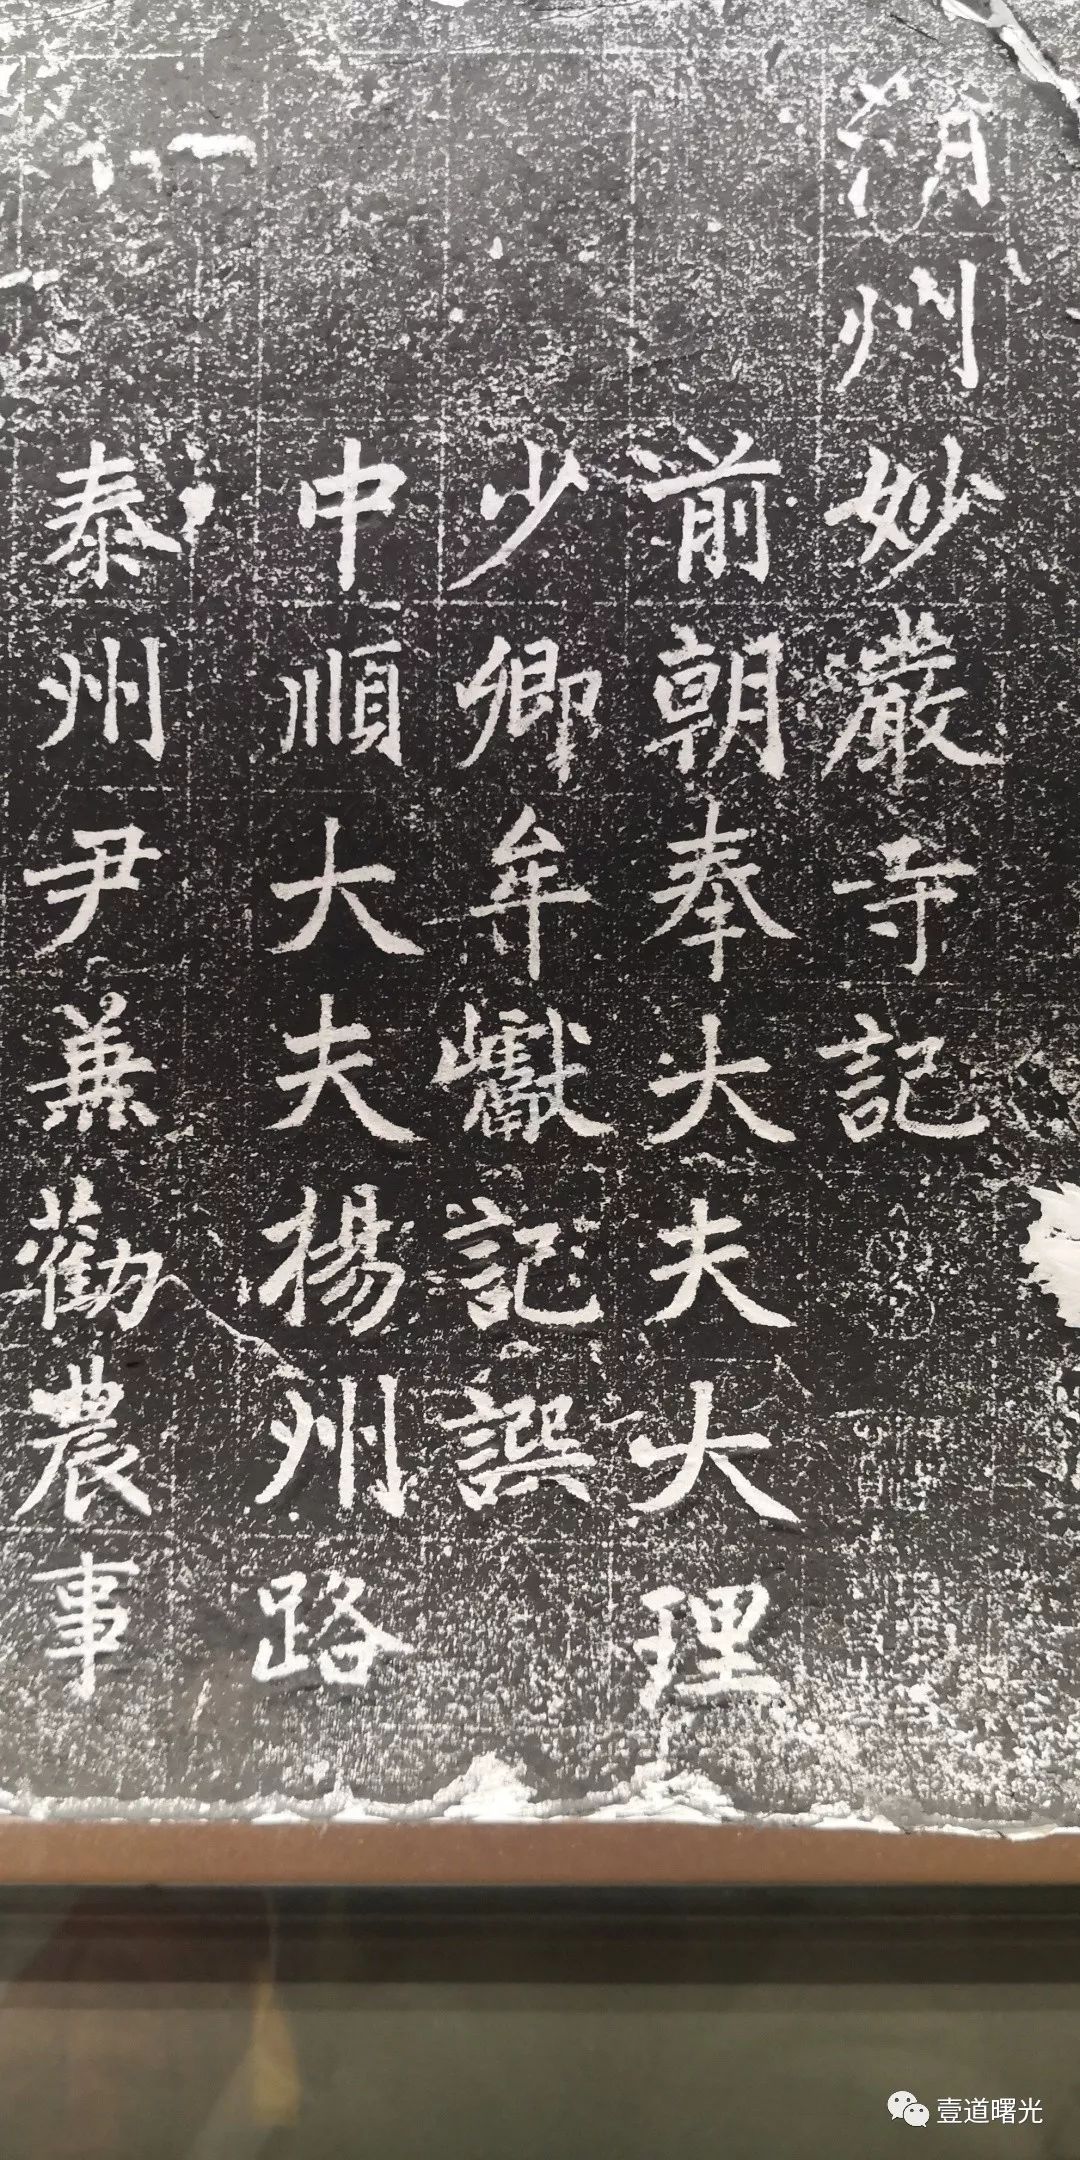 湖州
妙嚴寺記
前朝奉大夫大理
少卿牟巘記譔
中順大夫揚州路
泰州尹兼勸農事
壹道曙光